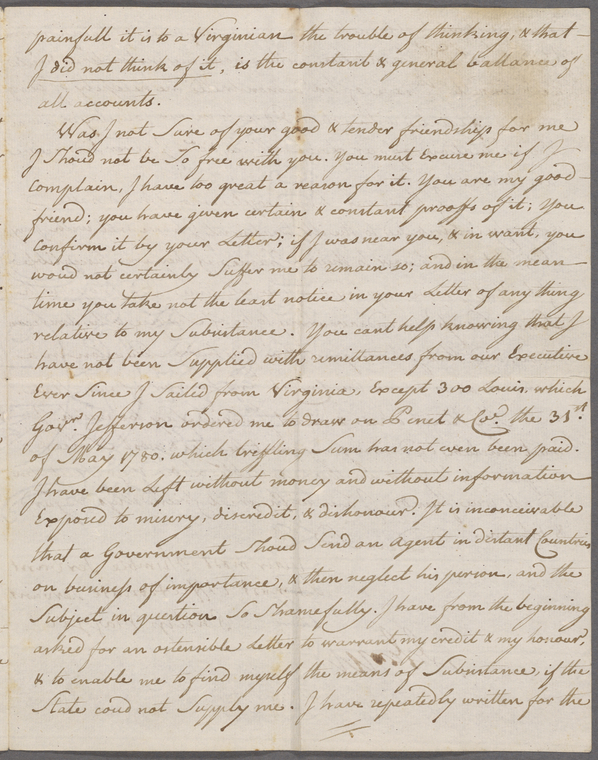 painfull it is to a Virginian the trouble of thinking, & that
I did not think of it, is the constant & general ballance of
all accounts.
Was I not Sure of your good & tender friendship for me
I Shoud not be So free with you. You must Excuse me if I
Complain, I have too great a reason for it. You are my good
friend; you have given certain & constant prooffs of it; You
Confirm it by your Letter; if I was near you, & in want, you
woud not certainly Suffer me to remain so; and in the mean
time you take not the least notice in your Letter of any thing
relative to my Subsistance. You cant help knowing that I
have not been Supplied with remittances from our Executive
Ever Since I Sailed from Virginia, Except 300 Louis, which
Govr. Jefferson ordered me to draw on Penet & Co. the 31st.
of May 1780. which triffling Sum has not even been paid.
I have been Left without money and without information
Exposed to misery, discredit, & dishonour. It is inconceivable
that a Government Shoud Send an Agent in distant Countries
on business of importance, & then neglect his person, and the
Subject in question So Shamefully. I have from the beginning
asked for an ostensible Letter to warrant my credit & my honour,
& to enable me to find myself the means of Subsistance, if the
State coud not Supply me. I have repeatedly written for the